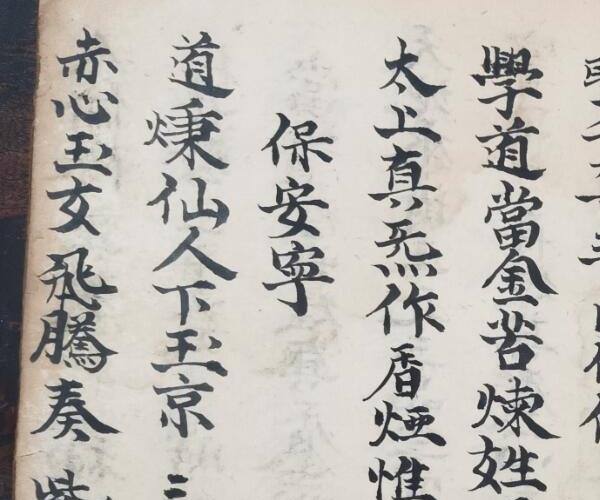 學道當金苦煉姓
太上真炁作香煙惟
保安寧
道煉仙人下玉京三
赤心玉女飛騰奏